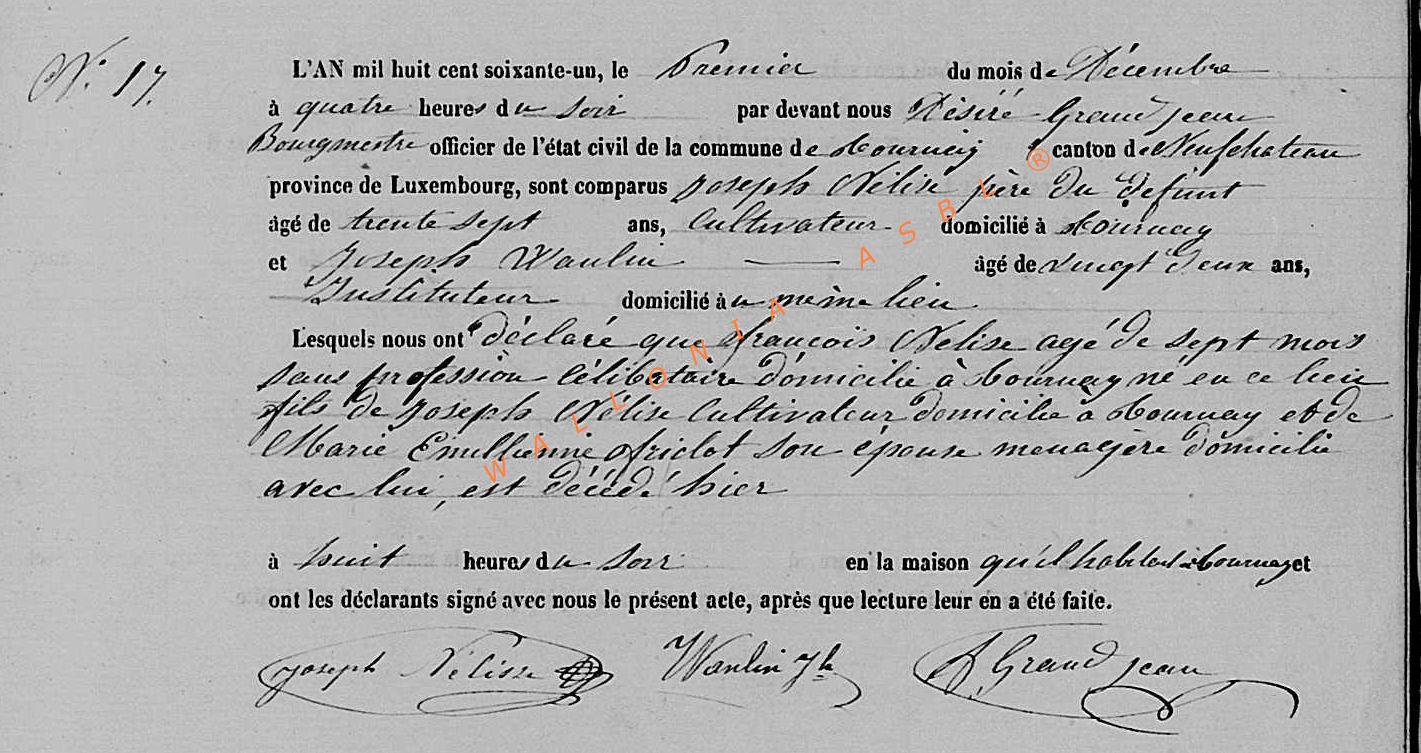 N.° 17.
L'AN mil huit cent soixante-un, le Premier du mois de Décembre
à quatre heures du soir par devant nous Désiré Grand jean
Bourgmestre officier de l'état civil de la commune de Tournay canton de Neufchateau
province de Luxembourg, sont comparus Joseph Nélise père du défunt
âgé de trente sept ans, Cultivateur domicilié à Tournay
et Joseph Waulin âgé de vingt deux ans,
Instituteur domicilié au même lieu
Lesquels nous ont déclaré que francois Nelise agé de sept mois
sans profession Célibataire domicilié à Tournay né en ce lieu
fils de Joseph Nélise Cultivateur domicilié à Tournay et de
Marie Emullienne friclot son épouse menagère domicilié
avec lui, est décédé hier
à huit heures du soir en la maison qu'il habitait à Tournay et
ont les déclarants signé avec nous le présent acte, après que lecture leur en a été faite.
Joseph Nélisse Waulin Jh D Grand jean
WALLONIA ASBL ®